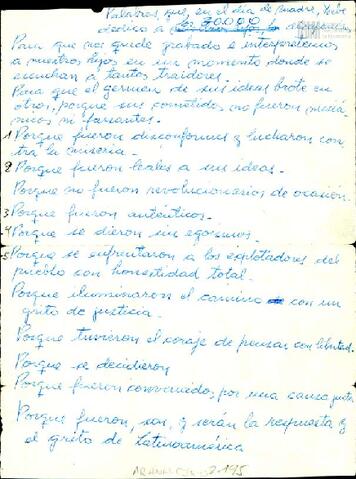 Palabras, que, en el día de madre, Hebe
dedica a los 30000
Para que nos quede grabado e interpretemos
a nuestros hijos en un momento donde se
escuchan a tantos traidores.
Para que el germen de sus ideas brote en
otros, porque sus cometidos no fueron
1 Porque fueron disconformes y lucharon con
tra la miseria.
2 Porque fueron leales a sus ideas.
Porque no fueron revolucionarios de ocasión.
3 Porque fueron auténticos.
4 Porque se dieron sin egoismos.
5 Porque se enfrentaron a los explotadores del
pueblo con honestidad total.
Porque iluminaron el camino con un
grito de justicia.
Porque tuvieron el coraje de pensar con libertad.
Porque se decidieron
Porque fueron convencidos por una causa justa
Porque fueron, son, y serán la respuesta y
el grito de Latinoamérica